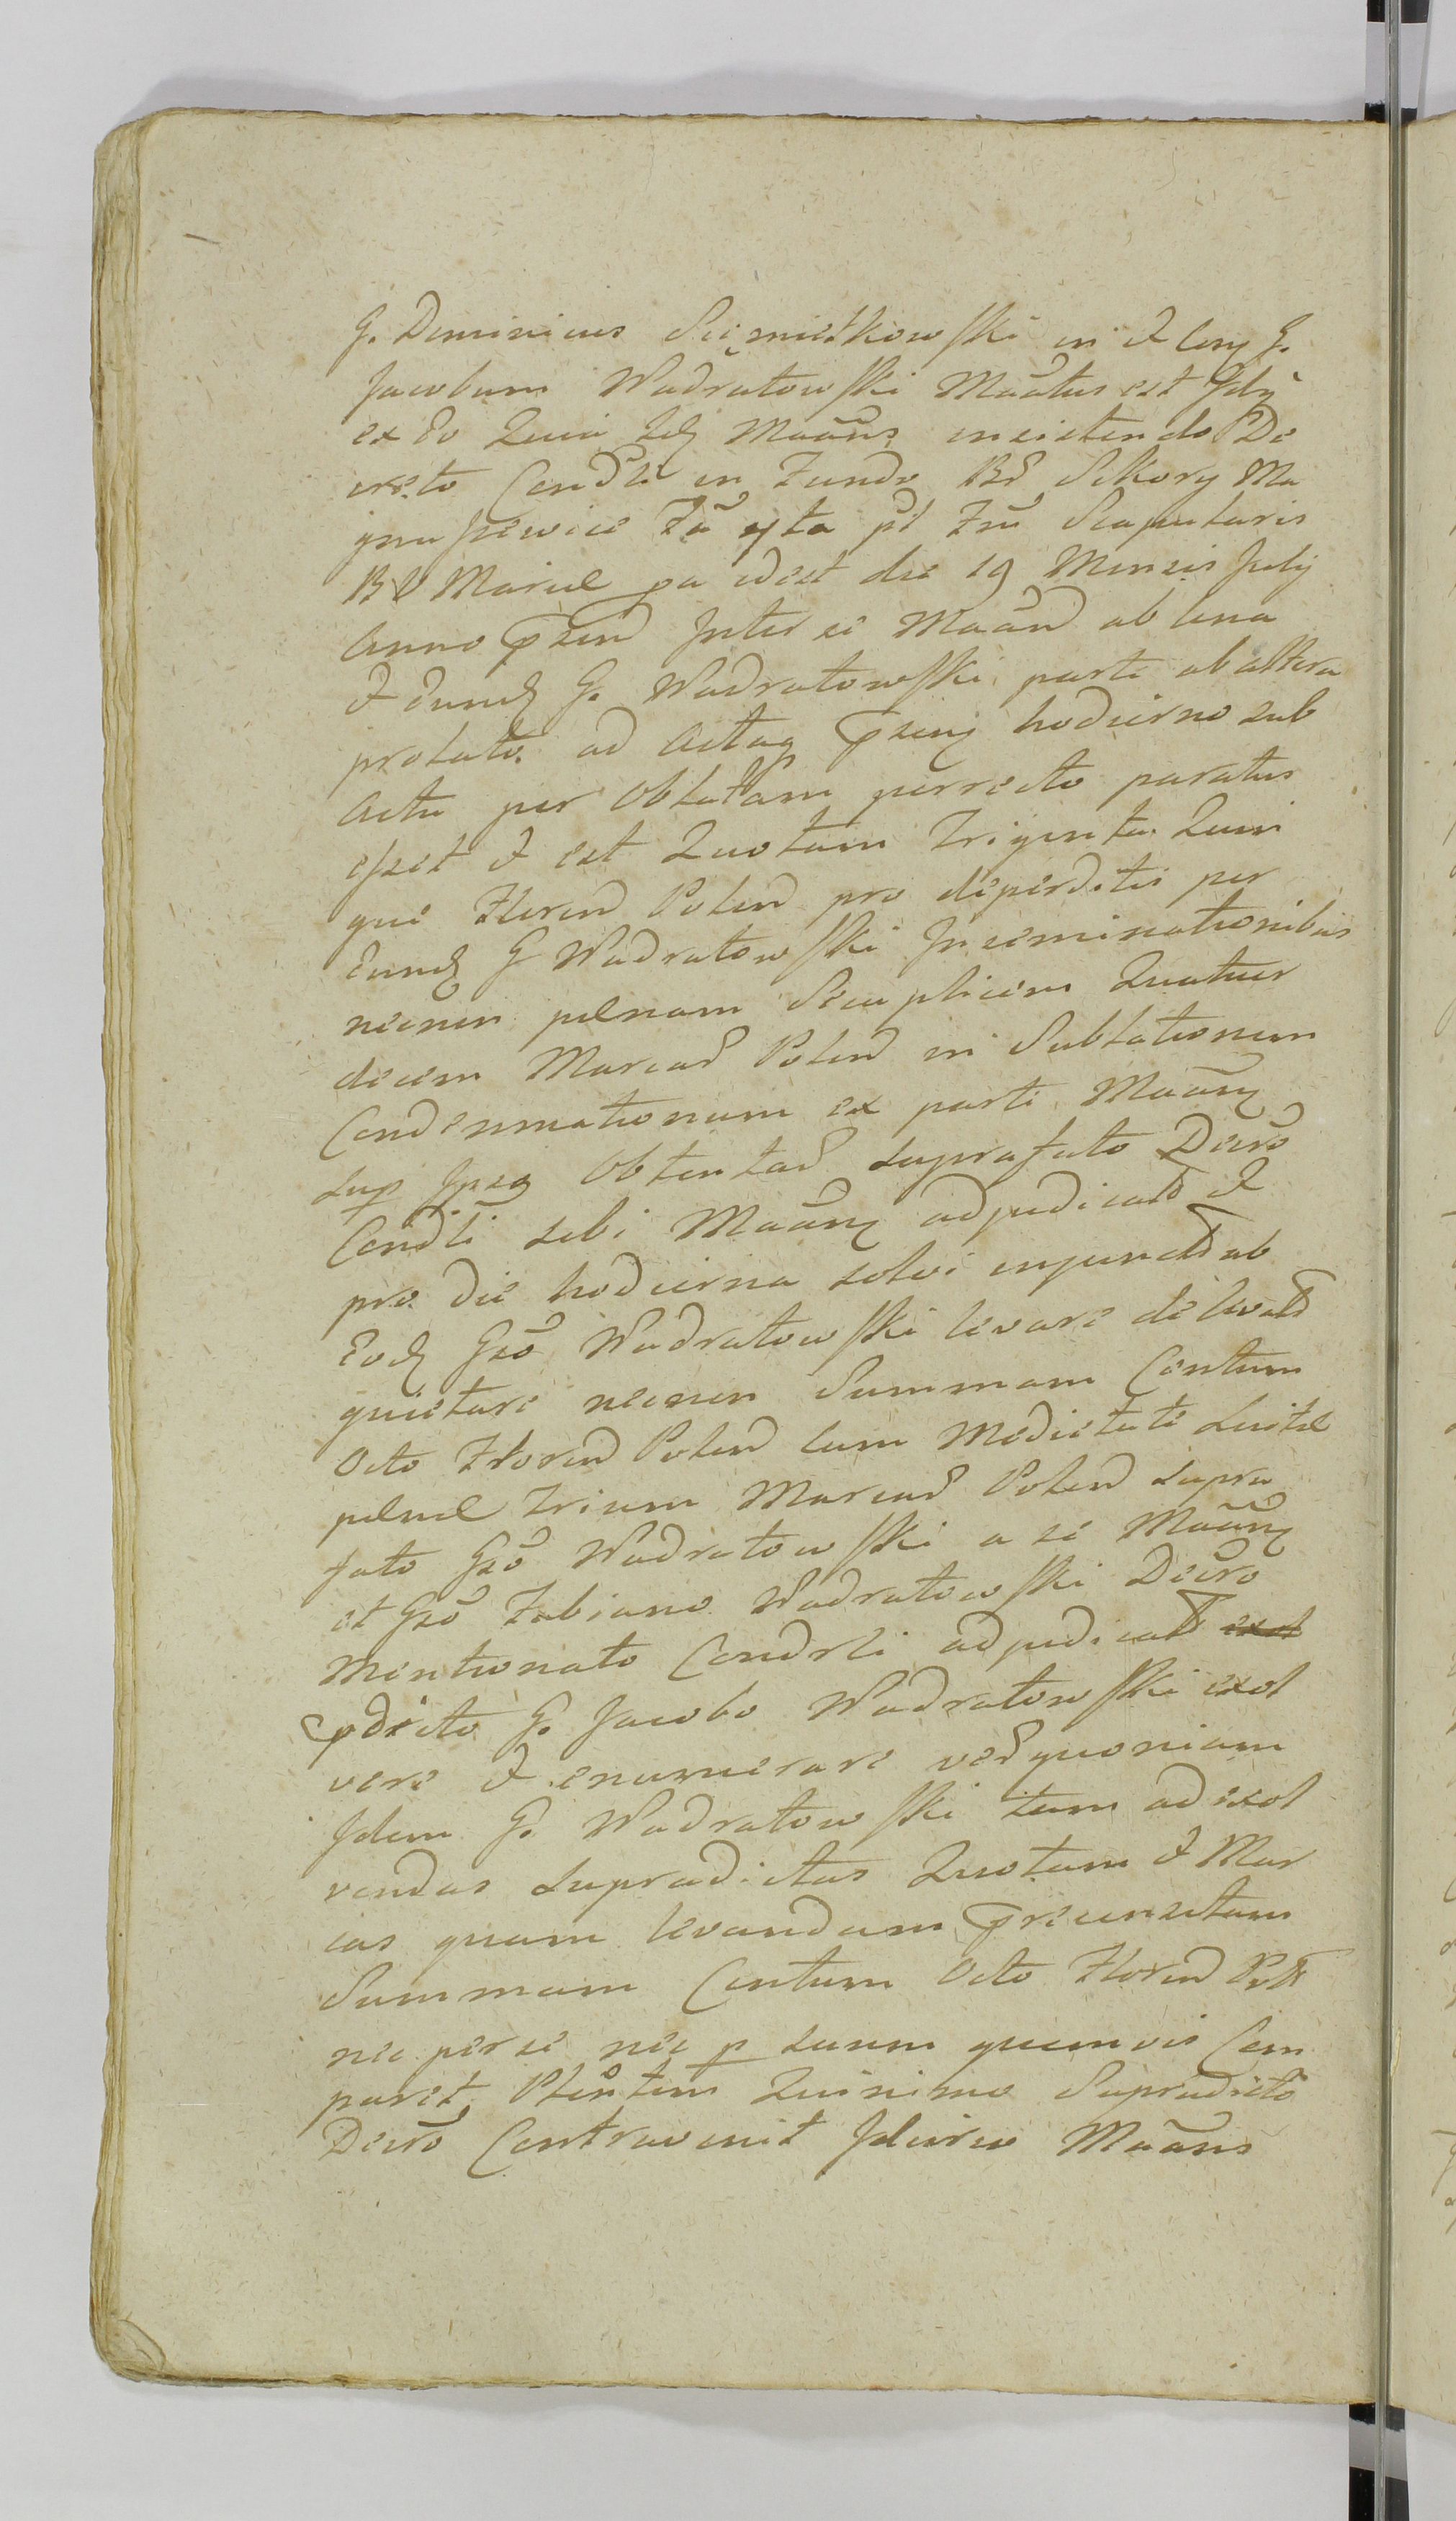 G. Dominicus Siemiątkowski in & Cong G.
Jacobum Wądrałowski Maātus est Idq̃
ex Eo Quia Idq Maāns insistendo De
creto Cond̃li in Fundo Bõ Sikory Ma
gnu szewice Fā 4ta pt Fm̃ Scapularis
B V Mariæ pa idest die 19 Mensis July
Anno p̃send Inter se Maān̄ ab una
& Eundq G. Wądrałowski parte ab altera
prolato. ad Actaq p̃senq hodierno sub
Actu per Oblatam perrecto paratus
esset & est Quotam Triginta Quin
que Floren̄ Polon̄ pro deperditis per
Eundq G Wądrałowski Inseminationibus
necnon pænam Scuplicem Quatuor
decem Marcar̄ Polon̄ in Sublationem
Condemnationum ex parte Maānq
sup Ipso Obtentar̄ suprafato Decr̃o
Cond̃li sibi Maānq adjudicat̃ &
pro die hodierna solvi injunct̃ ab
Eodq Gsõ Wądrałowski levare de levat̃
quietare necnon Summam Centum
Octo Floren̄ Polon̄ Cum Medietate Luitæ
pænæ Trium Marcar̄ Polon̄ supra
fato Gsõ Wądrałowski a se Maānq
et Gsõ Fabiano Wądrałowski Decr̃o
Mentionato Condrli adjudicat̃ exol
p̃dicto G. Jacobo Wądrałowski exol
vere & enumerare ver̄ quoniam
Idem G. Wądrałowski tam ad exol
vendas supradictas Quotam & Mar
cas quam levandam p̃recensitam
Summam Centum Octo Floren̄ Polt̃
nec per se nec p suum quemvis Com
paret Plentem Quinimo Supradicto
Decr̃o Contravenit Idcirco Maāns